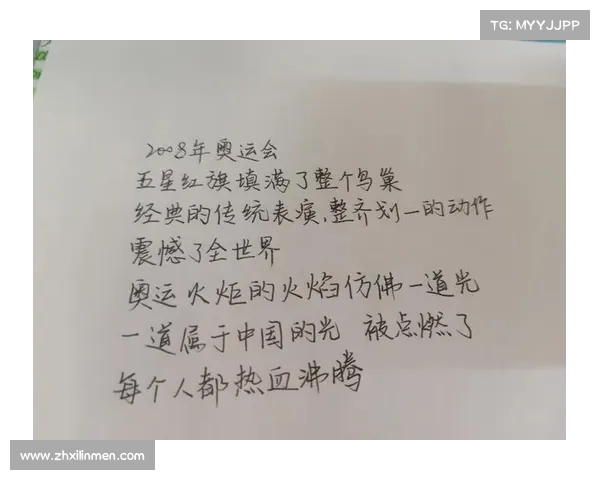 TG: MYYJJPP
2008年奥运会
五星红旗填满了整个鸟巢
经典的传统表演,整齐划一的动作
震撼了全世界
奥运火炬的火焰仿佛一道光
一道属于中国的光 被点燃了
每个人都热血沸腾
www.zhxilinmen.com